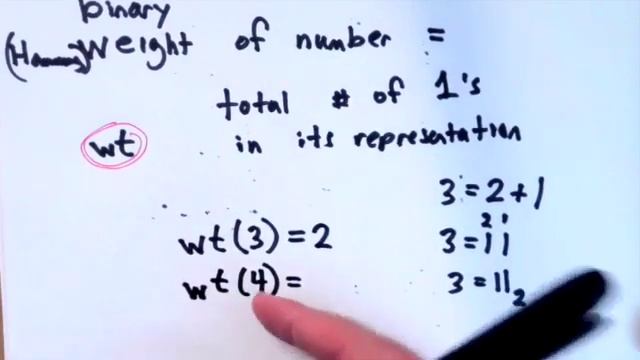 binary
(Hamming) weight of number =
total # of 1's
wt in its representation
3 = 2 + 1
2 1
wt(3) = 2 3 = 11
wt(4) = 3 = 11₂